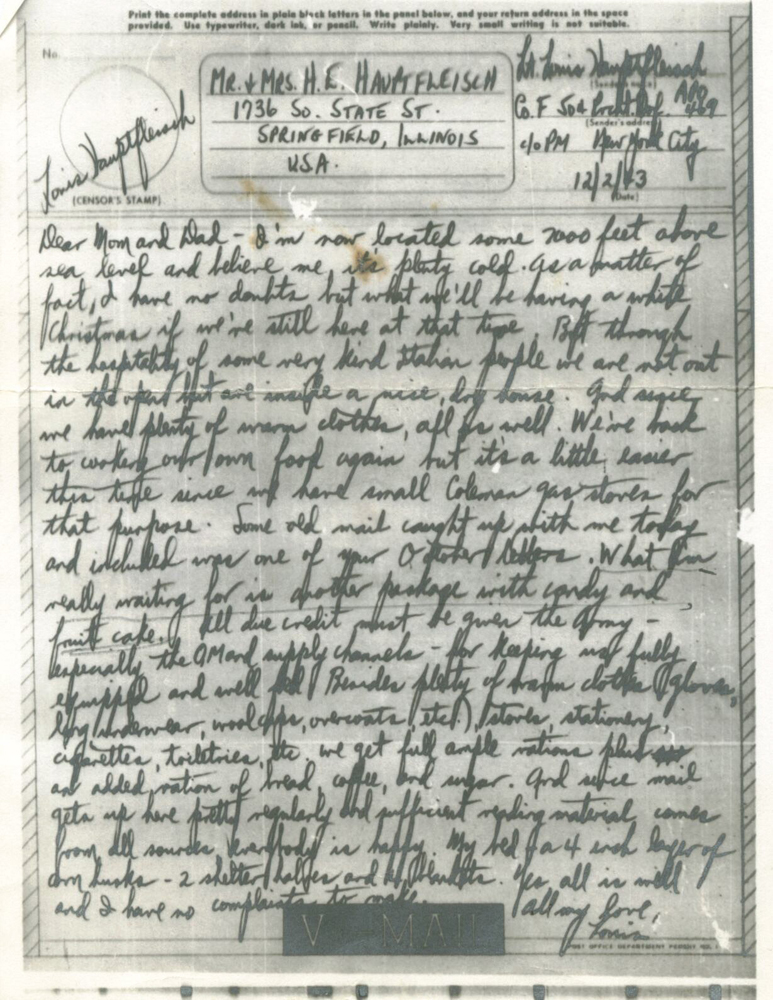 Print the complete address in plain block letters in the panel below, and your return address in the space
provided. Use typewriter, dark ink, or pencil. Write plainly. Very small writing is not suitable.
No.
MR. & MRS. H. E. HAUPTFLEISCH
1736 SO. STATE ST.
SPRINGFIELD, ILLINOIS
USA.
Lt. Louis Hauptfleisch
(Sender's name)
Co. F 504 Prcht. Inf. APO 469
(Sender's address)
c/o PM New York City
12/2/43
(Date)
Louis Hauptfleisch
(CENSOR'S STAMP)
Dear Mom and Dad - I'm now located some 2000 feet above
sea level and believe me, it's plenty cold. As a matter of
fact, I have no doubts but what we'll be having a white
Christmas if we're still here at that time. But through
the hospitality of some very kind Italian people we are not out
in the open but are inside a nice, dry house. And since
we have plenty of warm clothes, all is well. We're back
to cooking our own food again but it's a little easier
this time since we have small Coleman gas stoves for
that purpose. Some old mail caught up with me today
and included was one of your October letters. What I'm
really waiting for is another package with candy and
fruit cake. All due credit must be given the Army -
especially the QM and supply channels - for keeping us fully
equipped and well fed! Besides plenty of warm clothes (gloves,
long underwear, wool caps, overcoats, etc.), stoves, stationery,
cigarettes, toiletries, etc. we get full ample rations plus
an added ration of bread, coffee, and sugar. And since mail
gets up here pretty regularly and sufficient reading material comes
from all sources, everybody is happy. My bed - a 4 inch layer of
corn husks - 2 shelter halves and blankets. Yes, all is well
and I have no complaints to make.
All my love,
Louis
V MAIL
POST OFFICE DEPARTMENT PERMIT NO.